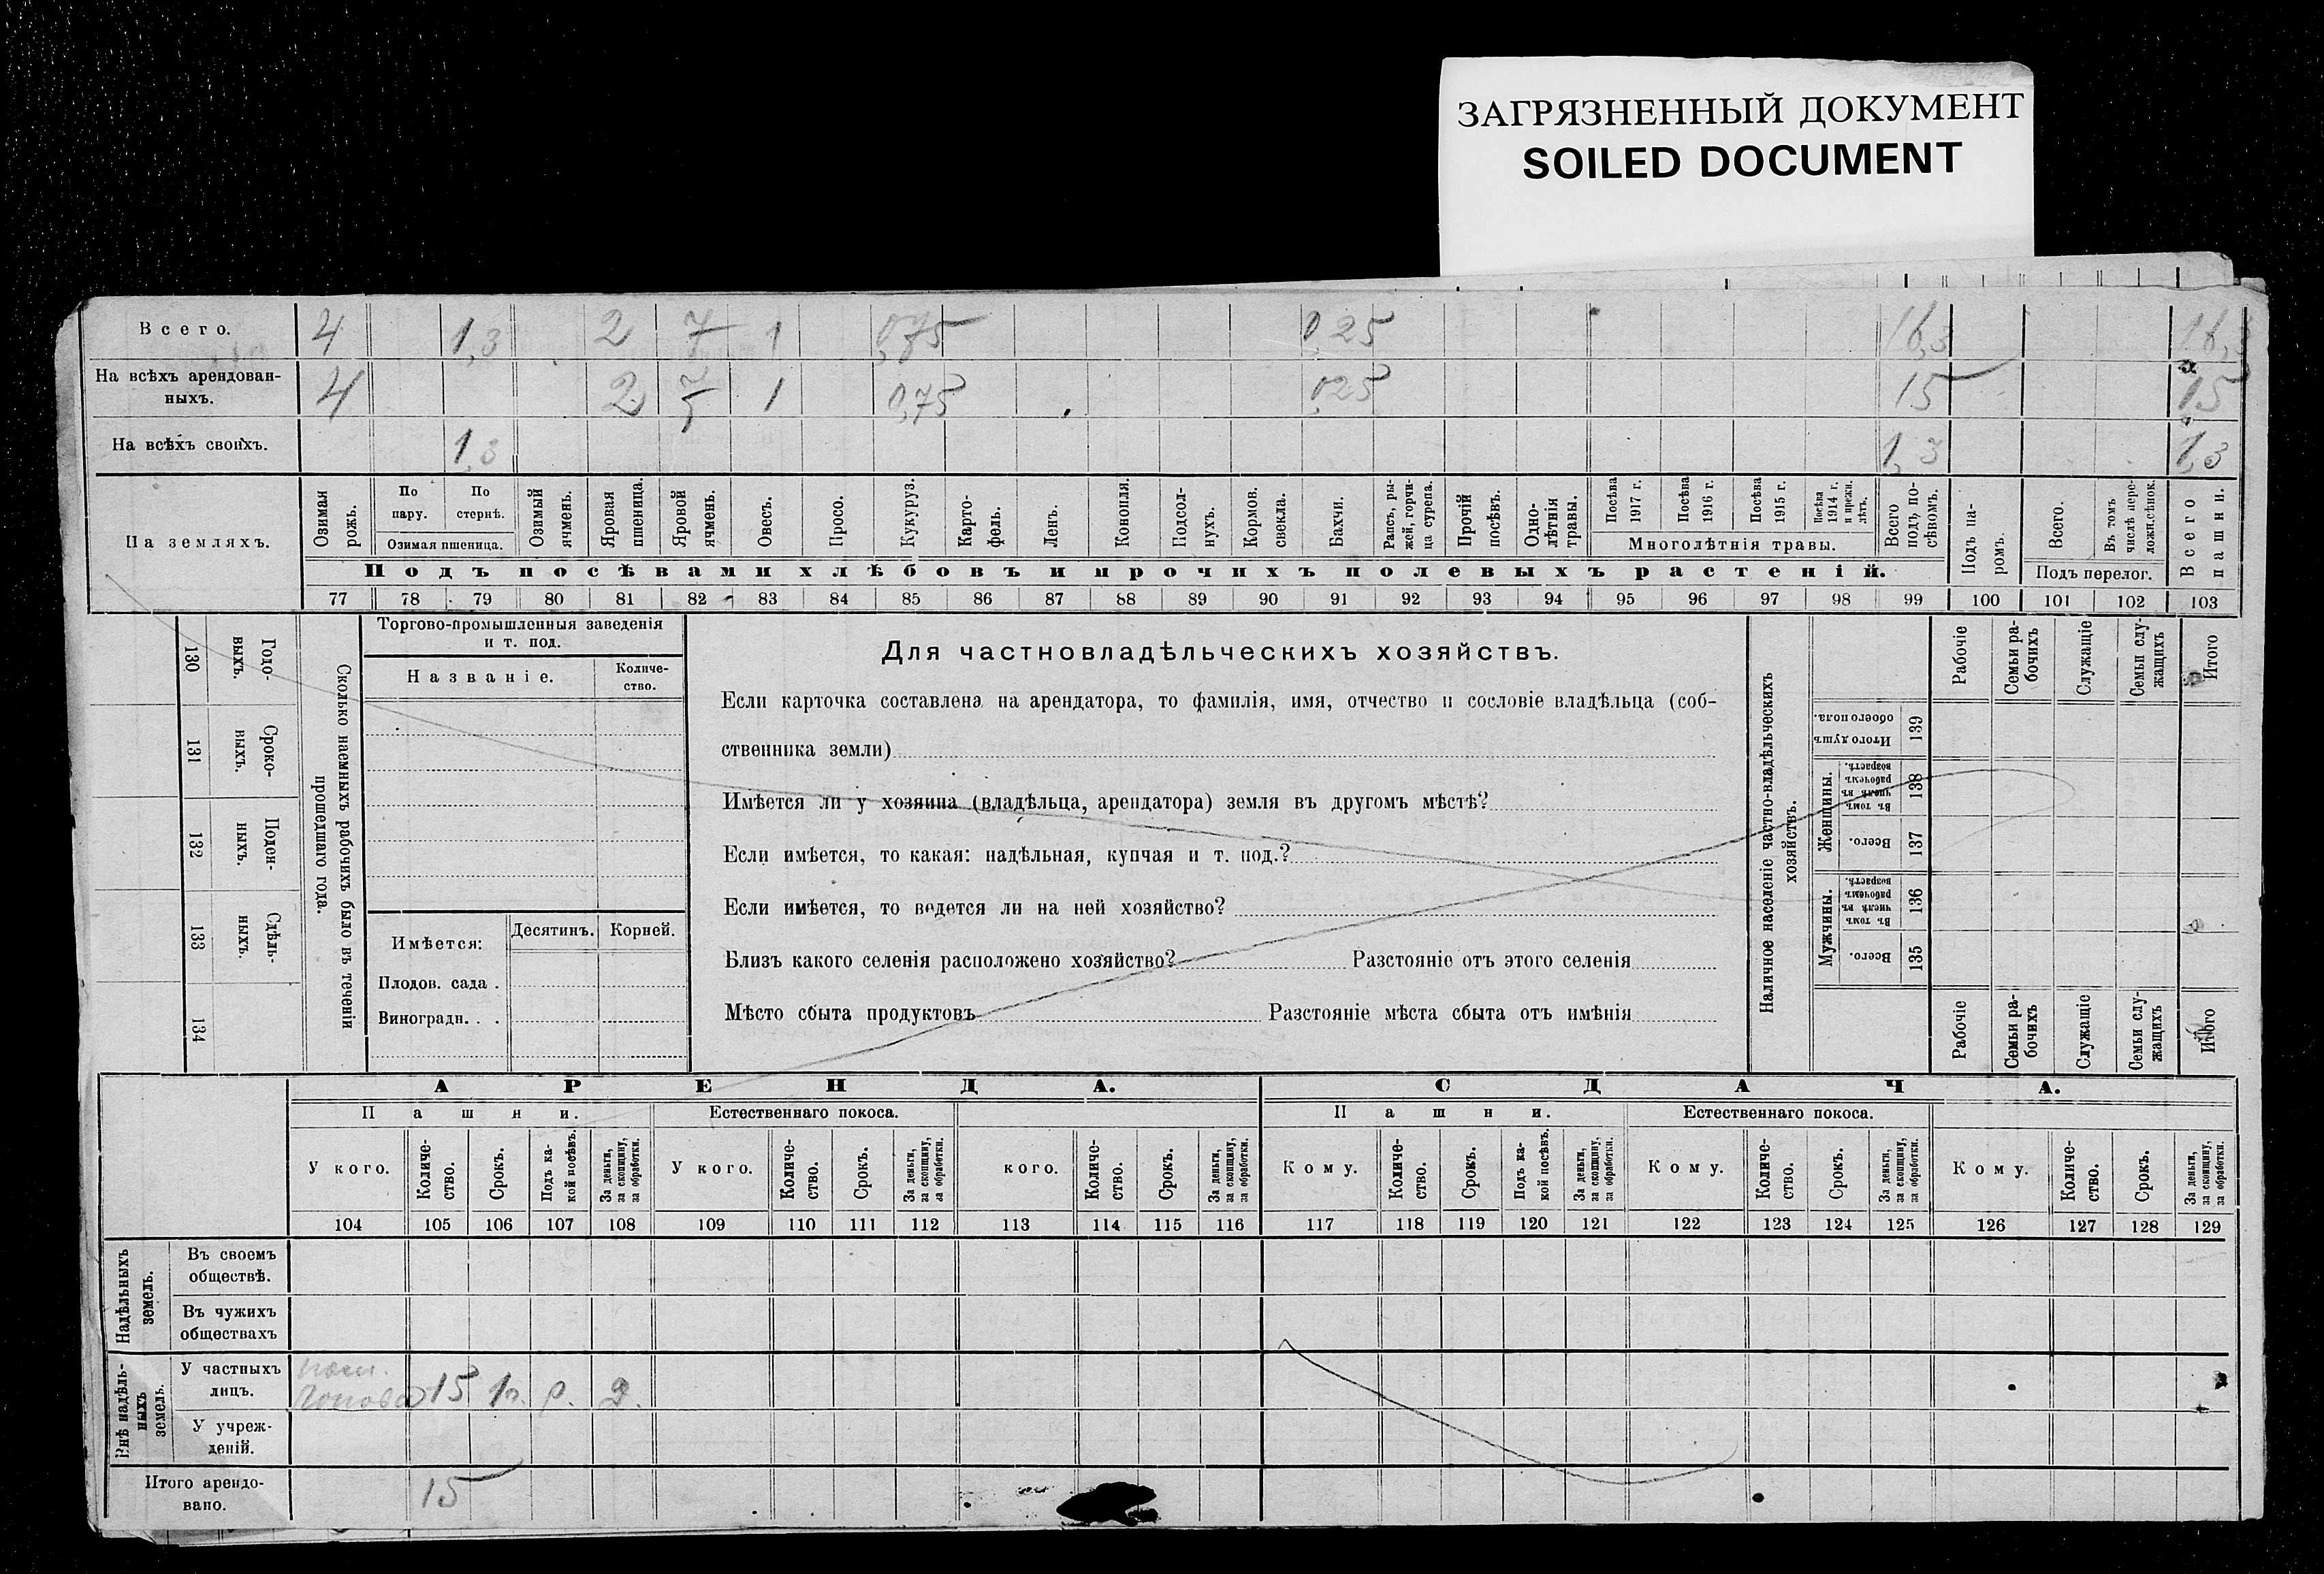 ЗАГРЯЗНЕННЫЙ ДОКУМЕНТ
SOILED DOCUMENT
Всего. 4 1,3 2 7 1 0,75 0,25 16,3 16,3
На всѣхъ арендован-
ныхъ. 4 2 7 1 0,75 0,25 15 15
На всѣхъ своихъ. 1,3 1,3 1,3
На земляхъ.
Озимая рожь.
По пару.
По стернѣ.
Озимая пшеница.
Озимый ячмень.
Яровая пшеница.
Яровой ячмень.
Овесъ.
Просо.
Кукуруз.
Карто-
фель.
Ленъ.
Конопля.
Подсол-
нухъ.
Кормов.
свекла.
Бахчи.
Рапсъ, ры-
жей, горчи-
ца сурепа.
Прочій
посѣвъ.
Одно-
лѣтнія
травы.
Посѣва
1917 г.
Посѣва
1916 г.
Посѣва
1915 г.
Посѣва
1914 г.
и прежн.
лѣтъ.
Многолѣтнія травы.
Всего
подъ по-
сѣвомъ.
Подъ па-
ромъ.
Всего.
Въ томъ
числѣ пере-
ложн.сѣнок.
Подъ перелог.
Всего
пашни.
Подъ посѣвами хлѣбовъ и прочихъ полевыхъ растеній.
77 78 79 80 81 82 83 84 85 86 87 88 89 90 91 92 93 94 95 96 97 98 99 100 101 102 103
Годо-
выхъ.
130
Сроко-
выхъ.
131
Поден-
ныхъ.
132
Сдѣль-
ныхъ.
133
134
Сколько наемныхъ рабочихъ было въ теченіи
прошедшаго года.
Торгово-промышленныя заведенія
и т. под.
Названіе.
Количе-
ство.
Имѣется:
Десятинъ.
Корней.
Плодов. сада .
Виноградн. . .
Для частновладѣльческихъ хозяйствъ.
Если карточка составлена на арендатора, то фамилія, имя, отчество и сословіе владѣльца (соб-
ственника земли)
Имѣется ли у хозяина (владѣльца, арендатора) земля въ другомъ мѣстѣ?
Если имѣется, то какая: надѣльная, купчая и т. под.?
Если имѣется, то ведется ли на ней хозяйство?
Близъ какого селенія расположено хозяйство? Разстояніе отъ этого селенія
Мѣсто сбыта продуктовъ Разстояніе мѣста сбыта отъ имѣнія
Наличное населеніе частно-владѣльческихъ
хозяйствъ.
Рабочіе
Семьи ра-
бочихъ
Служащіе
Семьи слу-
жащихъ
Итого
Итого душъ
обоего пола.
139
Женщины.
Въ томъ
числѣ въ
рабочемъ
возрастѣ.
138
Всего.
137
Мужчины.
Въ томъ
числѣ въ
рабочемъ
возрастѣ.
136
Всего.
135
Рабочіе
Семьи ра-
бочихъ
Служащіе
Семьи слу-
жащихъ
Итого
АРЕНДА. СДАЧА.
Пашни. Естественнаго покоса. Пашни. Естественнаго покоса.
У кого.
Количе-
ство.
Срокъ.
Подъ ка-
кой посѣвъ.
За деньги,
за скопщину,
за обработки.
У кого.
Количе-
ство.
Срокъ.
За деньги,
за скопщину,
за обработки.
кого.
Количе-
ство.
Срокъ.
За деньги,
за скопщину,
за обработки.
Кому.
Количе-
ство.
Срокъ.
Подъ ка-
кой посѣвъ.
За деньги,
за скопщину,
за обработки.
Кому.
Количе-
ство.
Срокъ.
За деньги,
за скопщину,
за обработки.
Кому.
Количе-
ство.
Срокъ.
За деньги,
за скопщину,
за обработки.
104 105 106 107 108 109 110 111 112 113 114 115 116 117 118 119 120 121 122 123 124 125 126 127 128 129
Надѣльныхъ
земель.
Въ своемъ
обществѣ.
Въ чужихъ
обществахъ
Внѣ надѣль-
ныхъ
земель.
У частныхъ
лицъ.
Попова 15 1г. р. д.
У учреж-
деній.
Итого арендо-
вано. 15